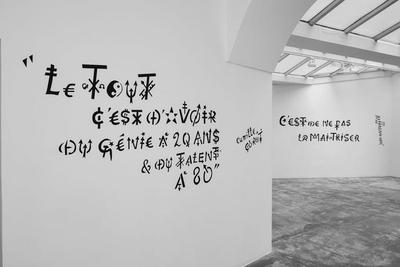 "Le TOUT
C'EST D'AVOIR
DU GÉNIE À 20 ANS
& DU TALENT
À 80"
Camille
COROT
C'EST DE NE PAS
LA MAITRISER